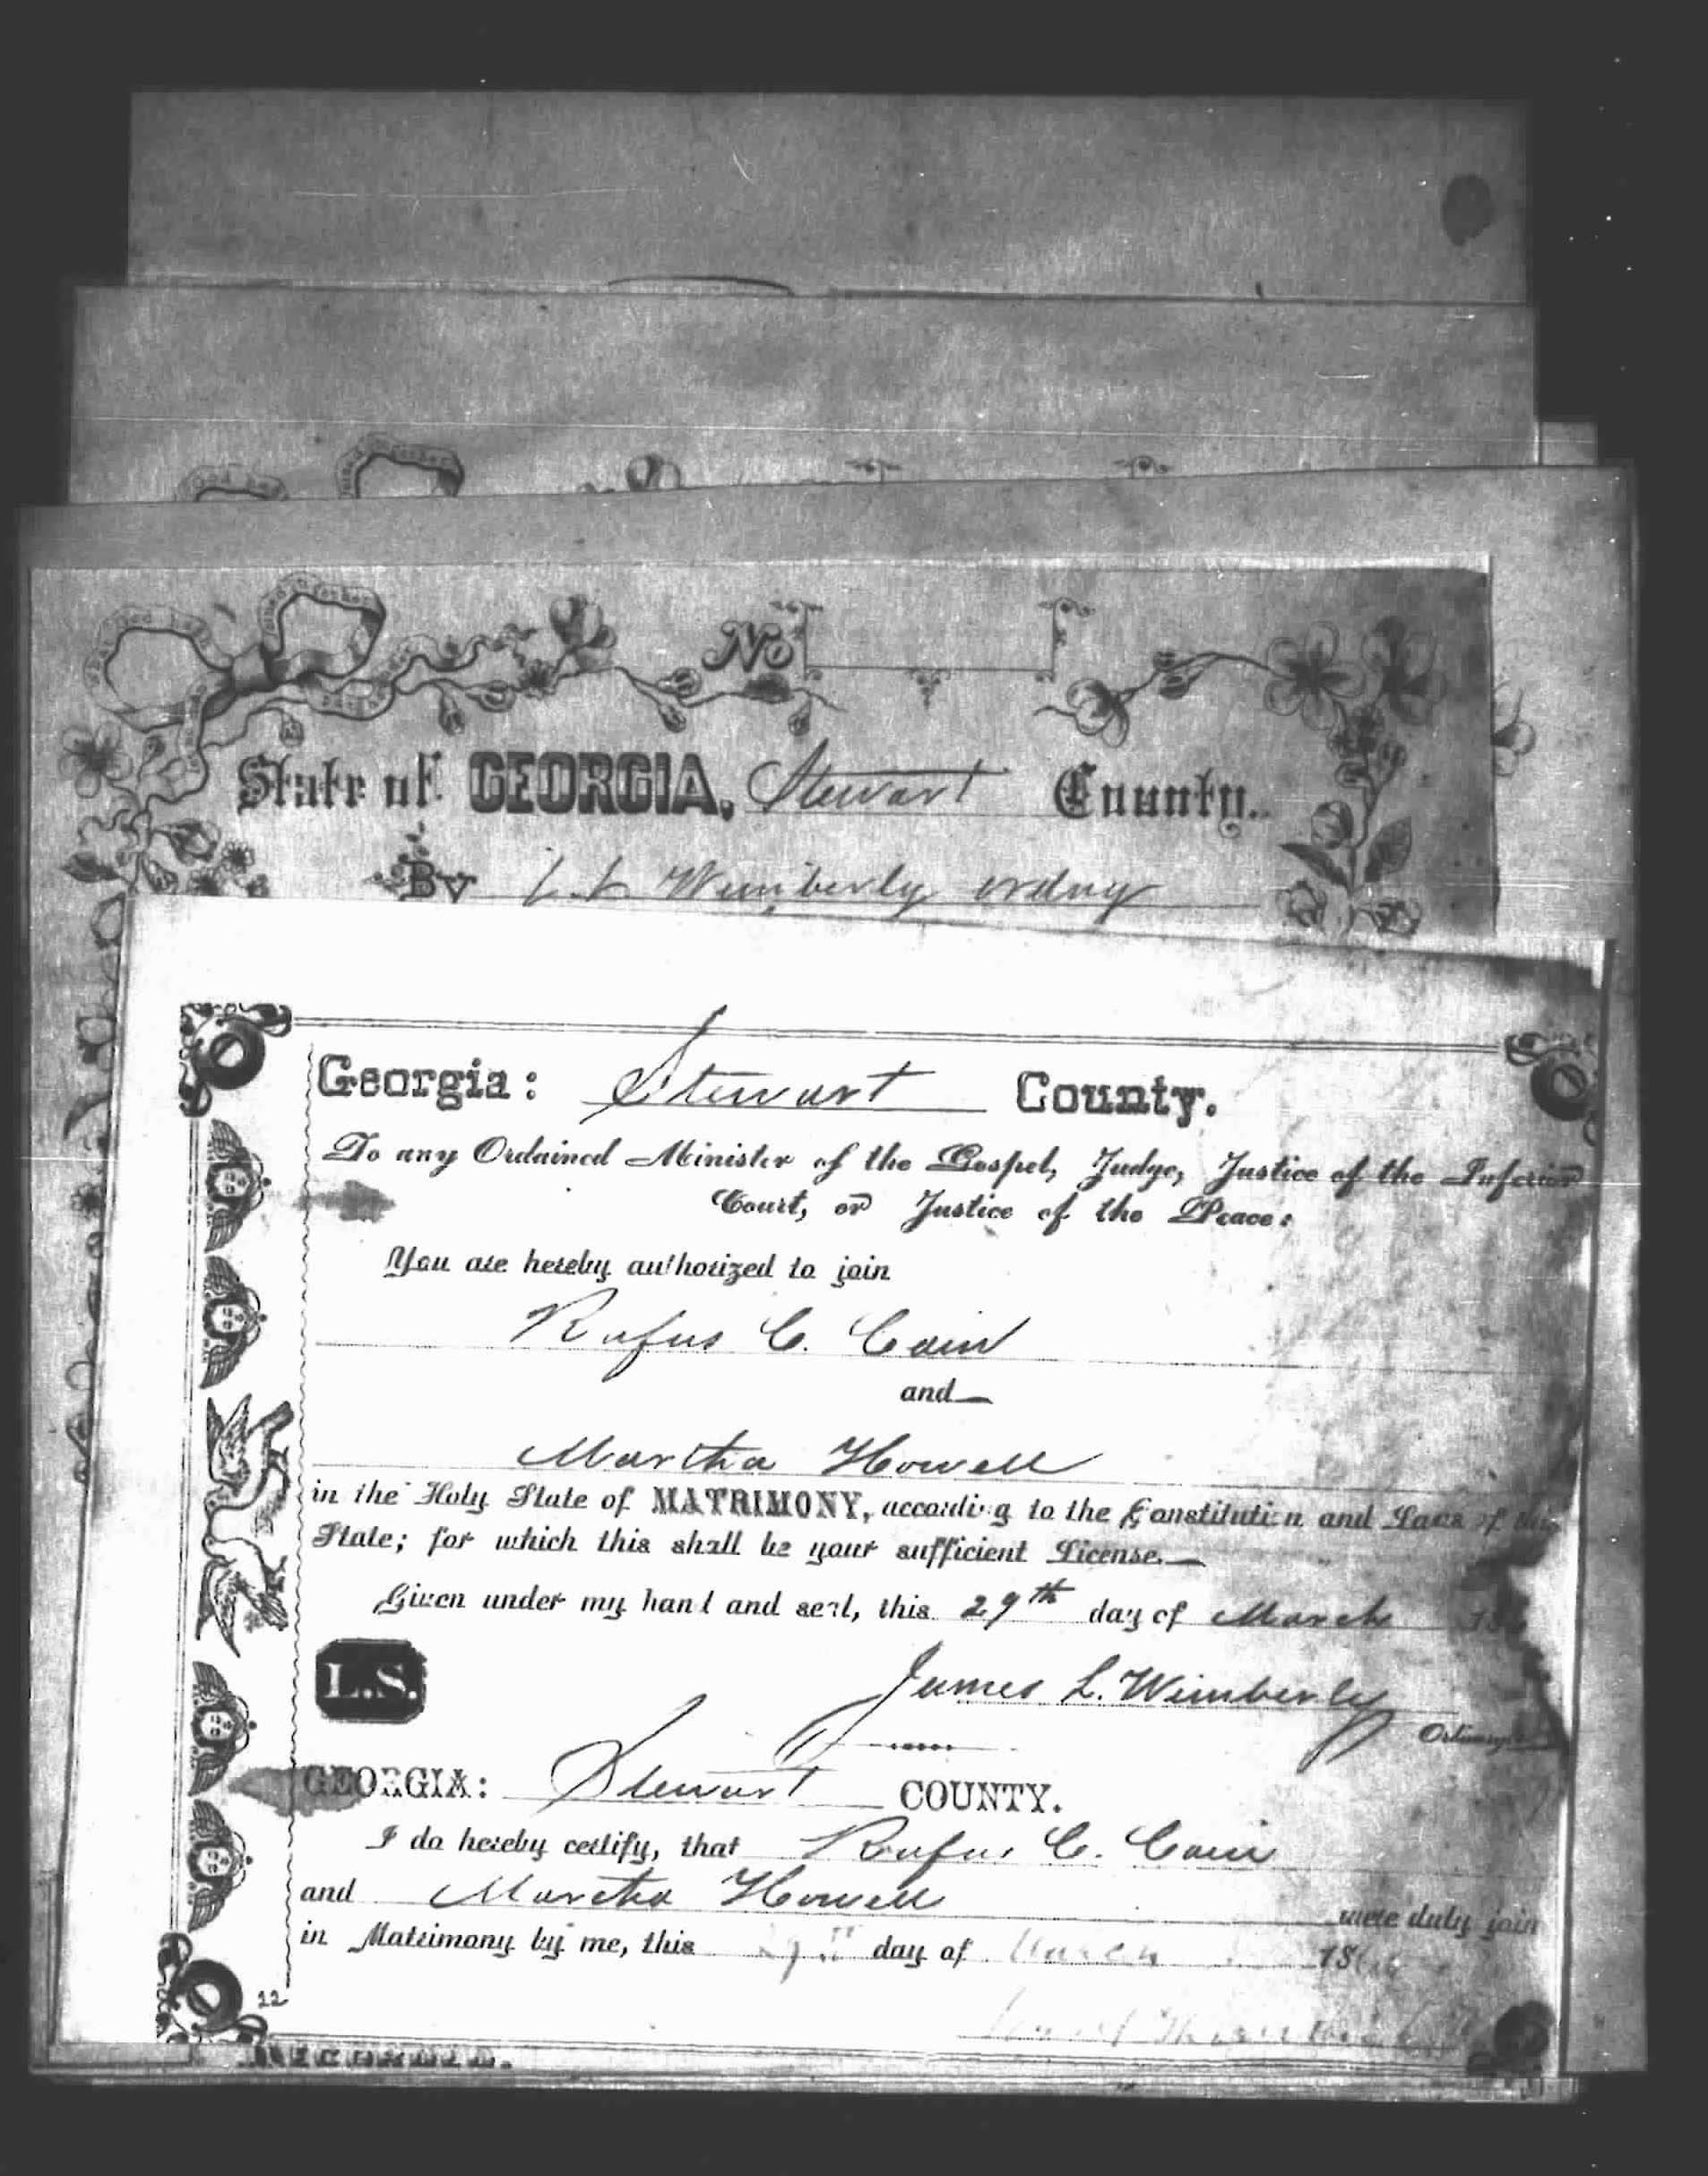 No
State of GEORGIA, Stewart County.
By J. L. Wimberly ordny
Georgia: Stewart County.
To any Ordained Minister of the Gospel, Judge, Justice of the Inferior
Court, or Justice of the Peace:
You are hereby authorized to join
Rufus C. Cain
and
Martha Howell
in the Holy State of MATRIMONY, according to the Constitution and Laws of this
State; for which this shall be your sufficient License.
Given under my hand and seal, this 29th day of March 18
L.S.
James L. Wimberly
Ordinary
GEORGIA: Stewart COUNTY.
I do hereby certify, that Rufus C. Cain
and Martha Howell were duly join
in Matrimony by me, this 29th day of March 186
12